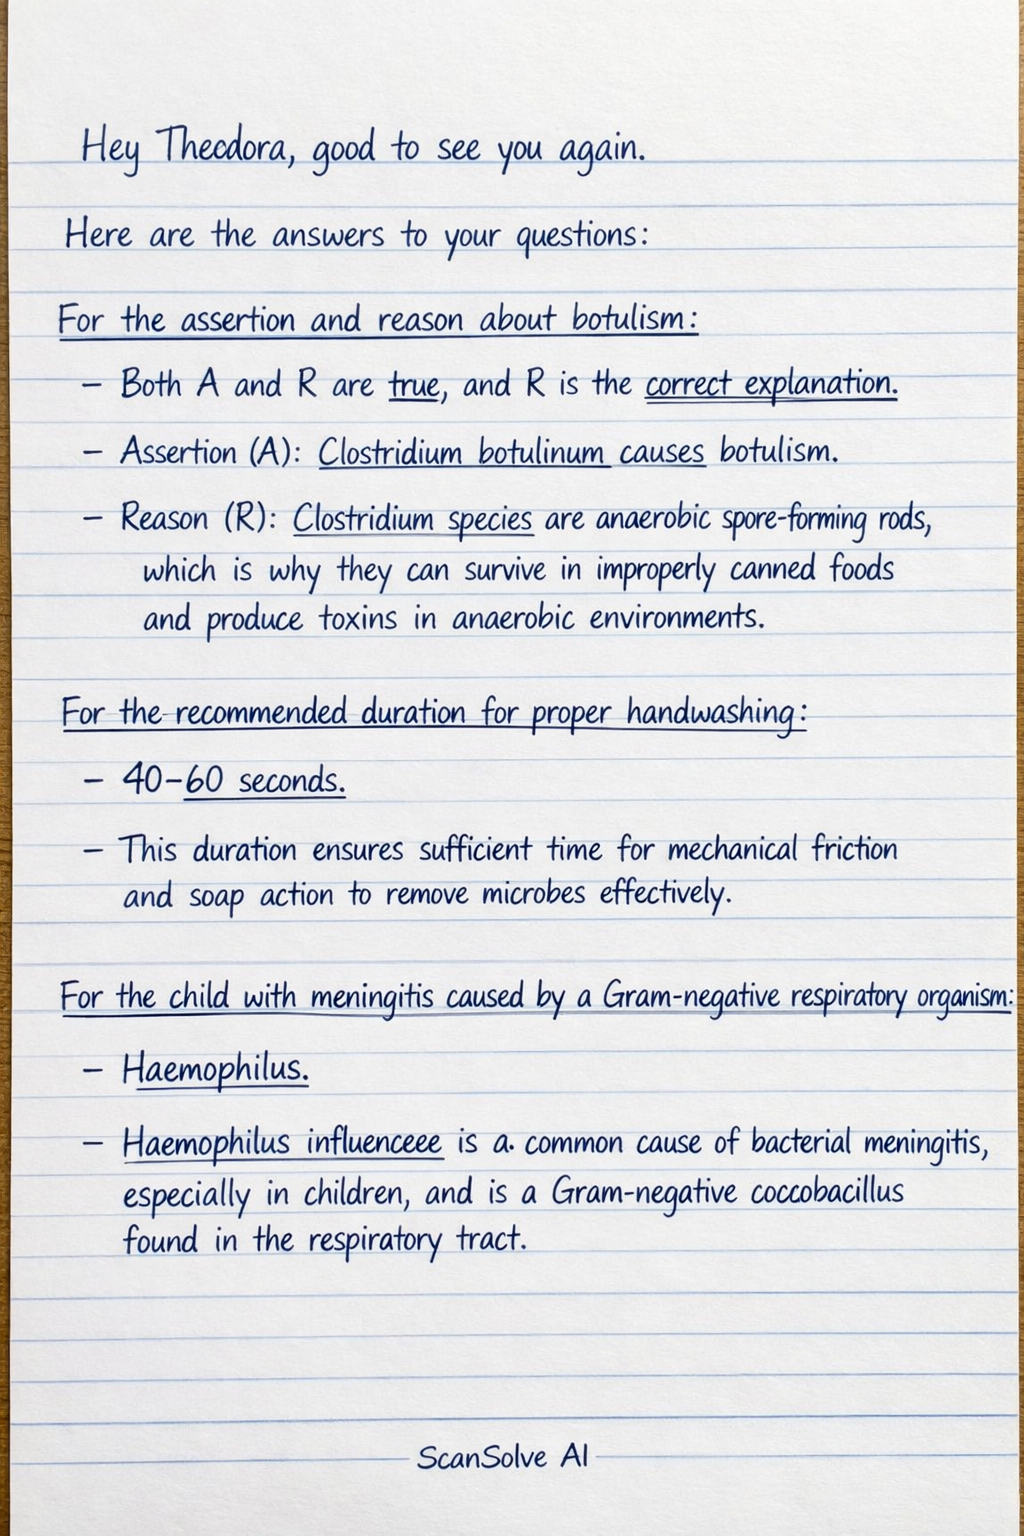 Hey Theodora, good to see you again.
Here are the answers to your questions:
For the assertion and reason about botulism:
– Both A and R are true, and R is the correct explanation.
– Assertion (A): Clostridium botulinum causes botulism.
– Reason (R): Clostridium species are anaerobic spore-forming rods,
which is why they can survive in improperly canned foods
and produce toxins in anaerobic environments.
For the recommended duration for proper handwashing:
– 40–60 seconds.
– This duration ensures sufficient time for mechanical friction
and soap action to remove microbes effectively.
For the child with meningitis caused by a Gram-negative respiratory organism:
– Haemophilus.
– Haemophilus influenceee is a. common cause of bacterial meningitis,
especially in children, and is a Gram-negative coccobacillus
found in the respiratory tract.
ScanSolve AI